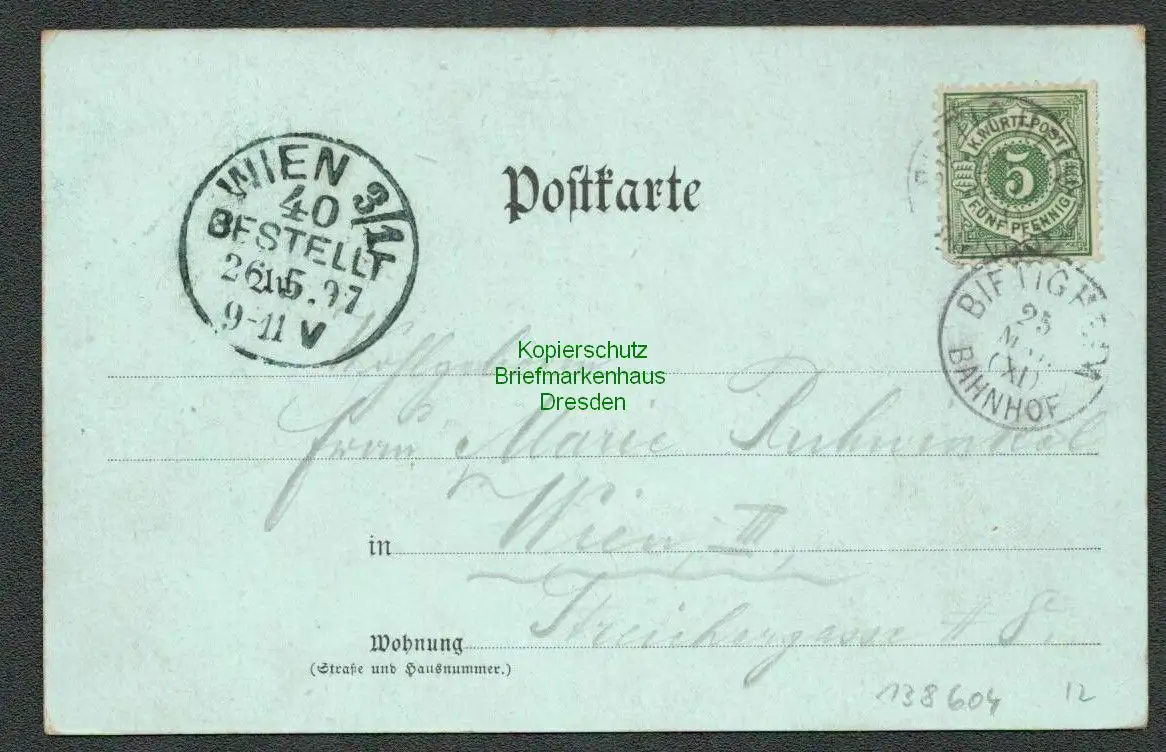 WIEN 3/1
40
BESTELLT
26.5.97
9-11 V
Postkarte
K. WÜRTT. POST
5
FÜNF PFENNIG
BIETIGHEIM
25
(XI)
BAHNHOF
Kopierschutz
Briefmarkenhaus
Dresden
Wohlgeboren
Frau Marie
in Wien III.
Wohnung
(Straße und Hausnummer.)
138604
12